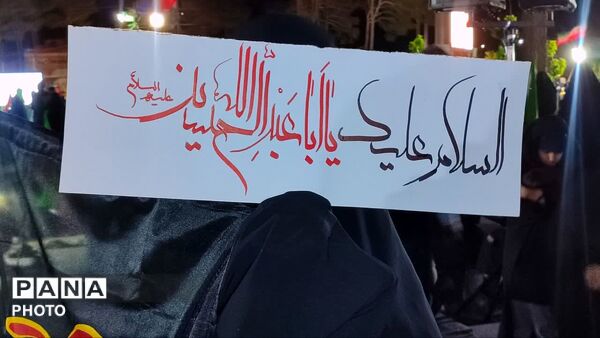 السلام علیک یا اَبا عَبْدِاللّه الحسین علیه السلام
PANA
PHOTO